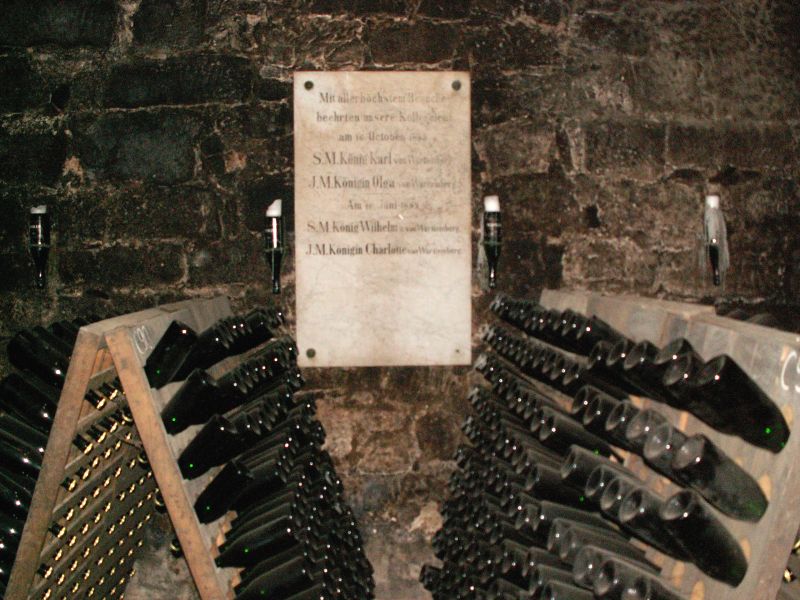 Mit allerhöchstem Besuche
beehrten unsere Kellereien
am 16. October
S.M. König Karl von Württemberg
J.M. Königin Olga von Württemberg
Am Juni
S.M. König Wilhelm von Württemberg
J.M. Königin Charlotte von Württemberg